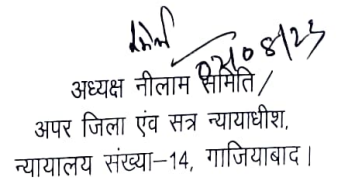 02/08/23
अध्यक्ष नीलाम समिति/
अपर जिला एंव सत्र न्यायाधीश,
न्यायालय संख्या–14, गाजियाबाद।